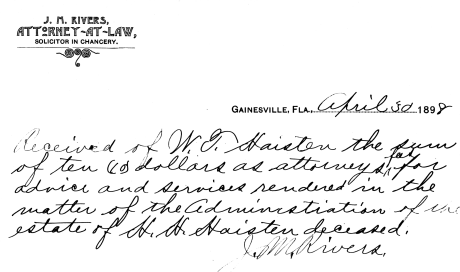 J. M. RIVERS,
ATTORNEY-AT-LAW,
SOLICITOR IN CHANCERY.
GAINESVILLE, FLA., April 30 1898
Received of W. T. Haisten the sum
of ten (10 dollars as attorneys fees for
advice and services rendered in the
matter of the Administration of the
estate of H. H. Haisten deceased.
J. M. Rivers.